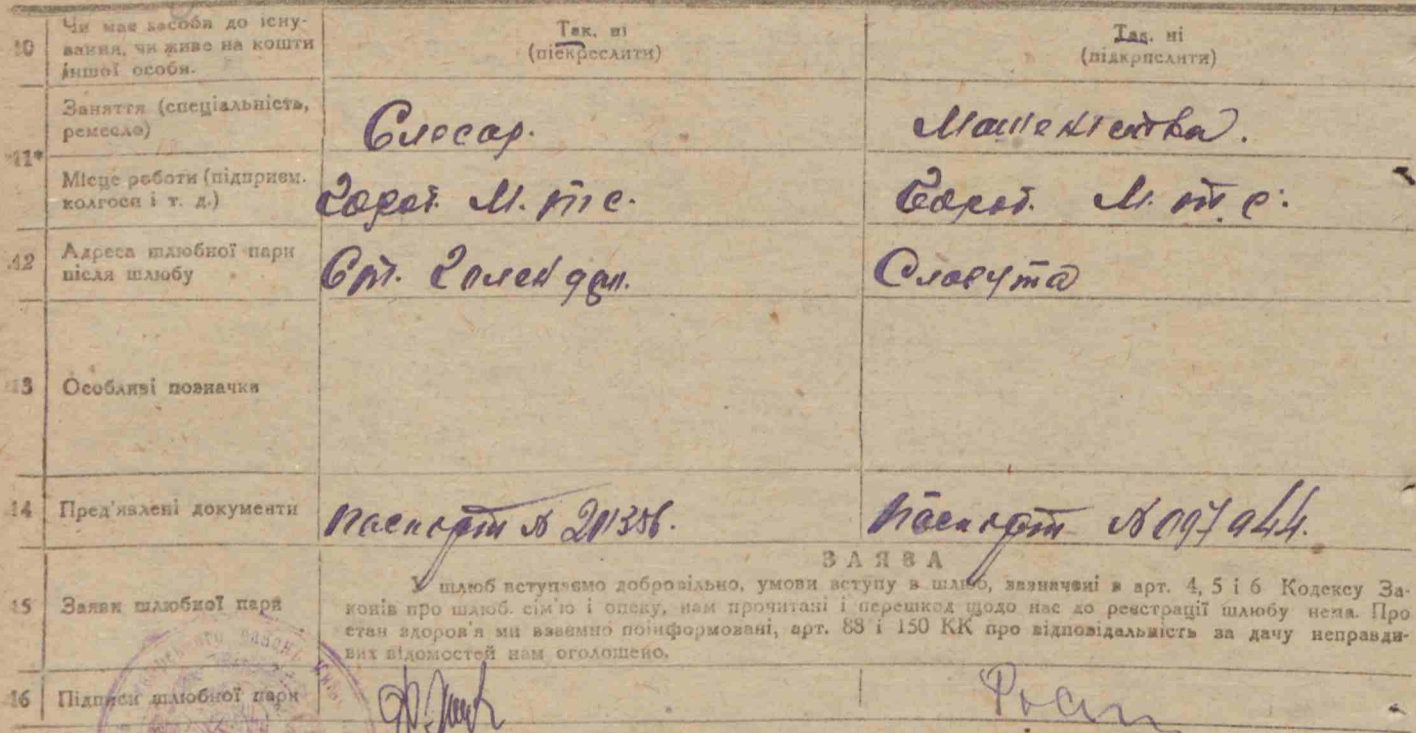 10 Чи має засоби до існу- Так, ні Так, ні
вання, чи живе на кошти (підкреслити) (підкрислити)
іншої особи.
Заняття (спеціальність,
ремесло) Слесар.
11*
Місце роботи (підприєм.
колгосп і т. д.) М. т с. М. т. с.
12 Адреса шлюбної пари
після шлюбу Славута
13 Особливі позначки
14 Пред'явлені документи Паспорт № 201356. Паспорт № 097944.
ЗАЯВА
15 Заяви шлюбної пари У шлюб вступаємо добровільно, умови вступу в шлюб, зазначені в арт. 4, 5 і 6 Кодексу За-
конів про шлюб. сім'ю і опеку, нам прочитані і перешкод щодо нас до реєстрації шлюбу нема. Про
стан здоров'я ми взаємно поінформовані, арт. 88 і 150 КК про відповідальність за дачу неправди-
вих відомостей нам оголошено.
16 Підписи шлюбної пари